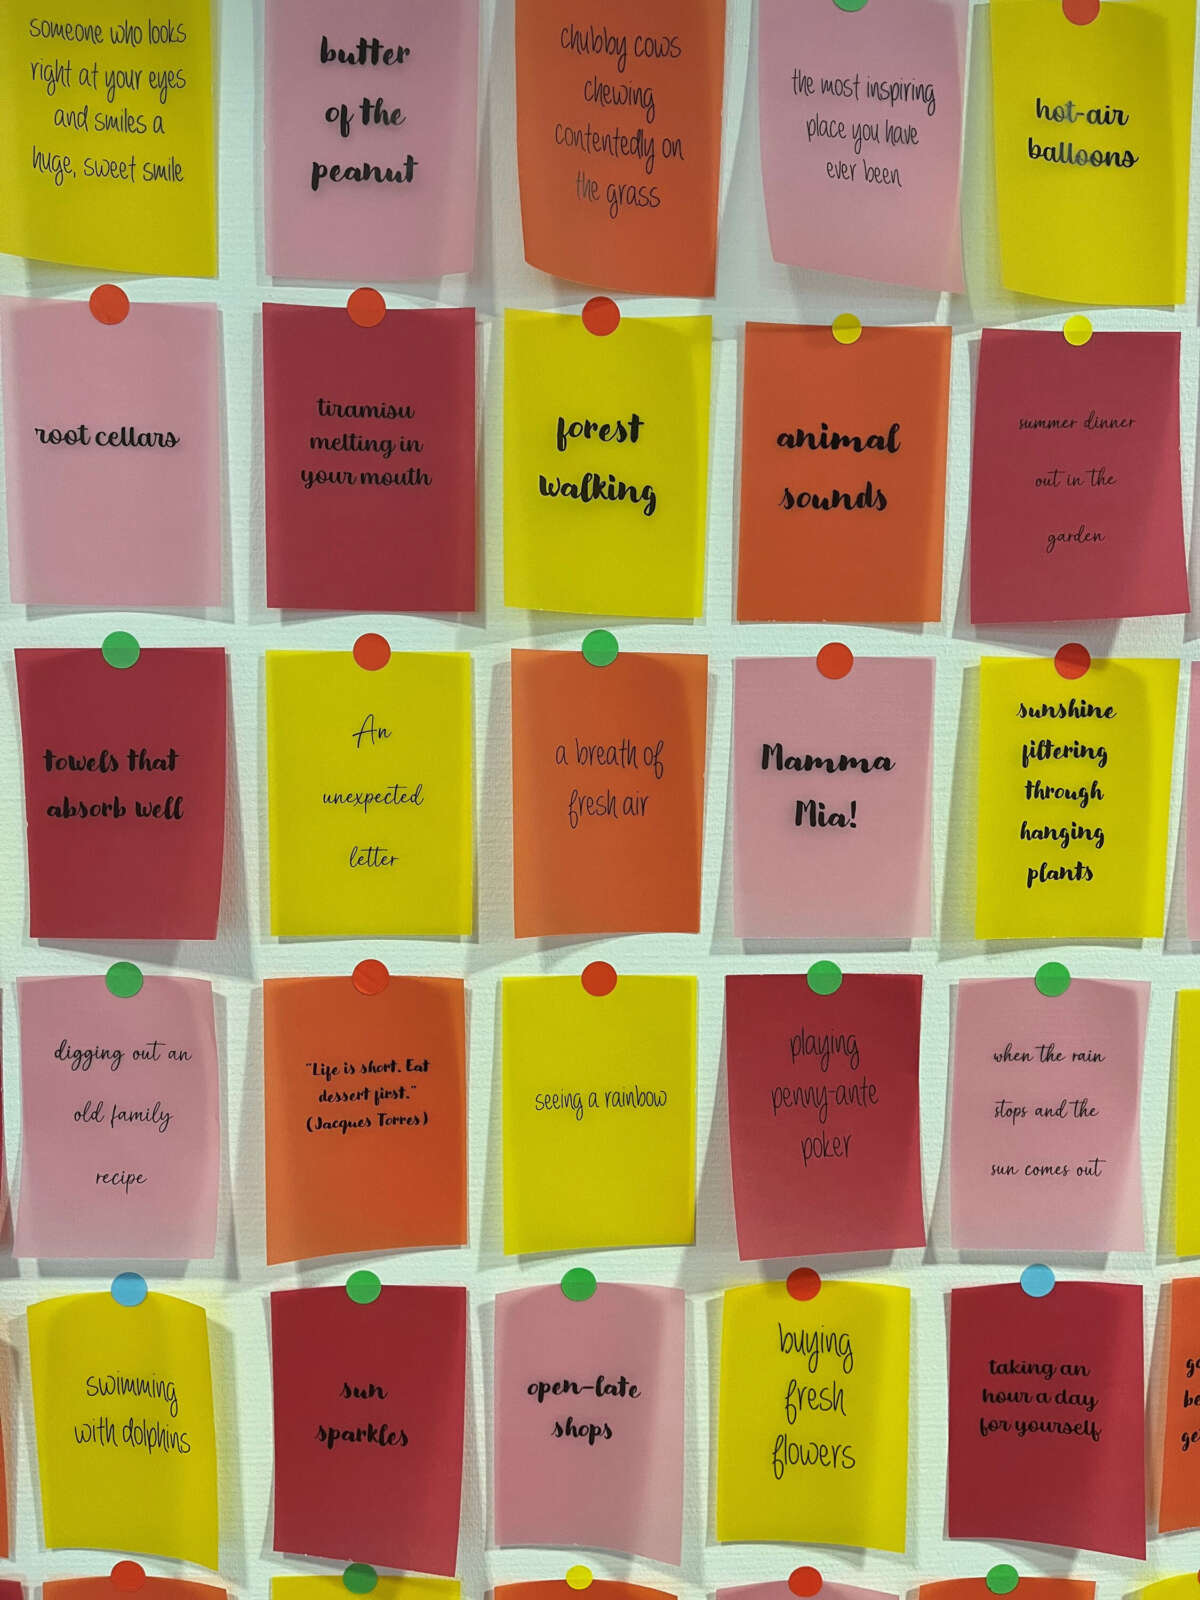 someone who looks
right at your eyes
and smiles a
huge, sweet smile
butter
of the
peanut
chubby cows
chewing
contentedly on
the grass
the most inspiring
place you have
ever been
hot-air
balloons
root cellars
tiramisu
melting in
your mouth
forest
walking
animal
sounds
summer dinner
out in the
garden
towels that
absorb well
An
unexpected
letter
a breath of
fresh air
Mamma
Mia!
sunshine
filtering
through
hanging
plants
digging out an
old family
recipe
"Life is short. Eat
dessert first."
(Jacques Torres)
seeing a rainbow
playing
penny-ante
poker
when the rain
stops and the
sun comes out
swimming
with dolphins
sun
sparkles
open-late
shops
buying
fresh
flowers
taking an
hour a day
for yourself